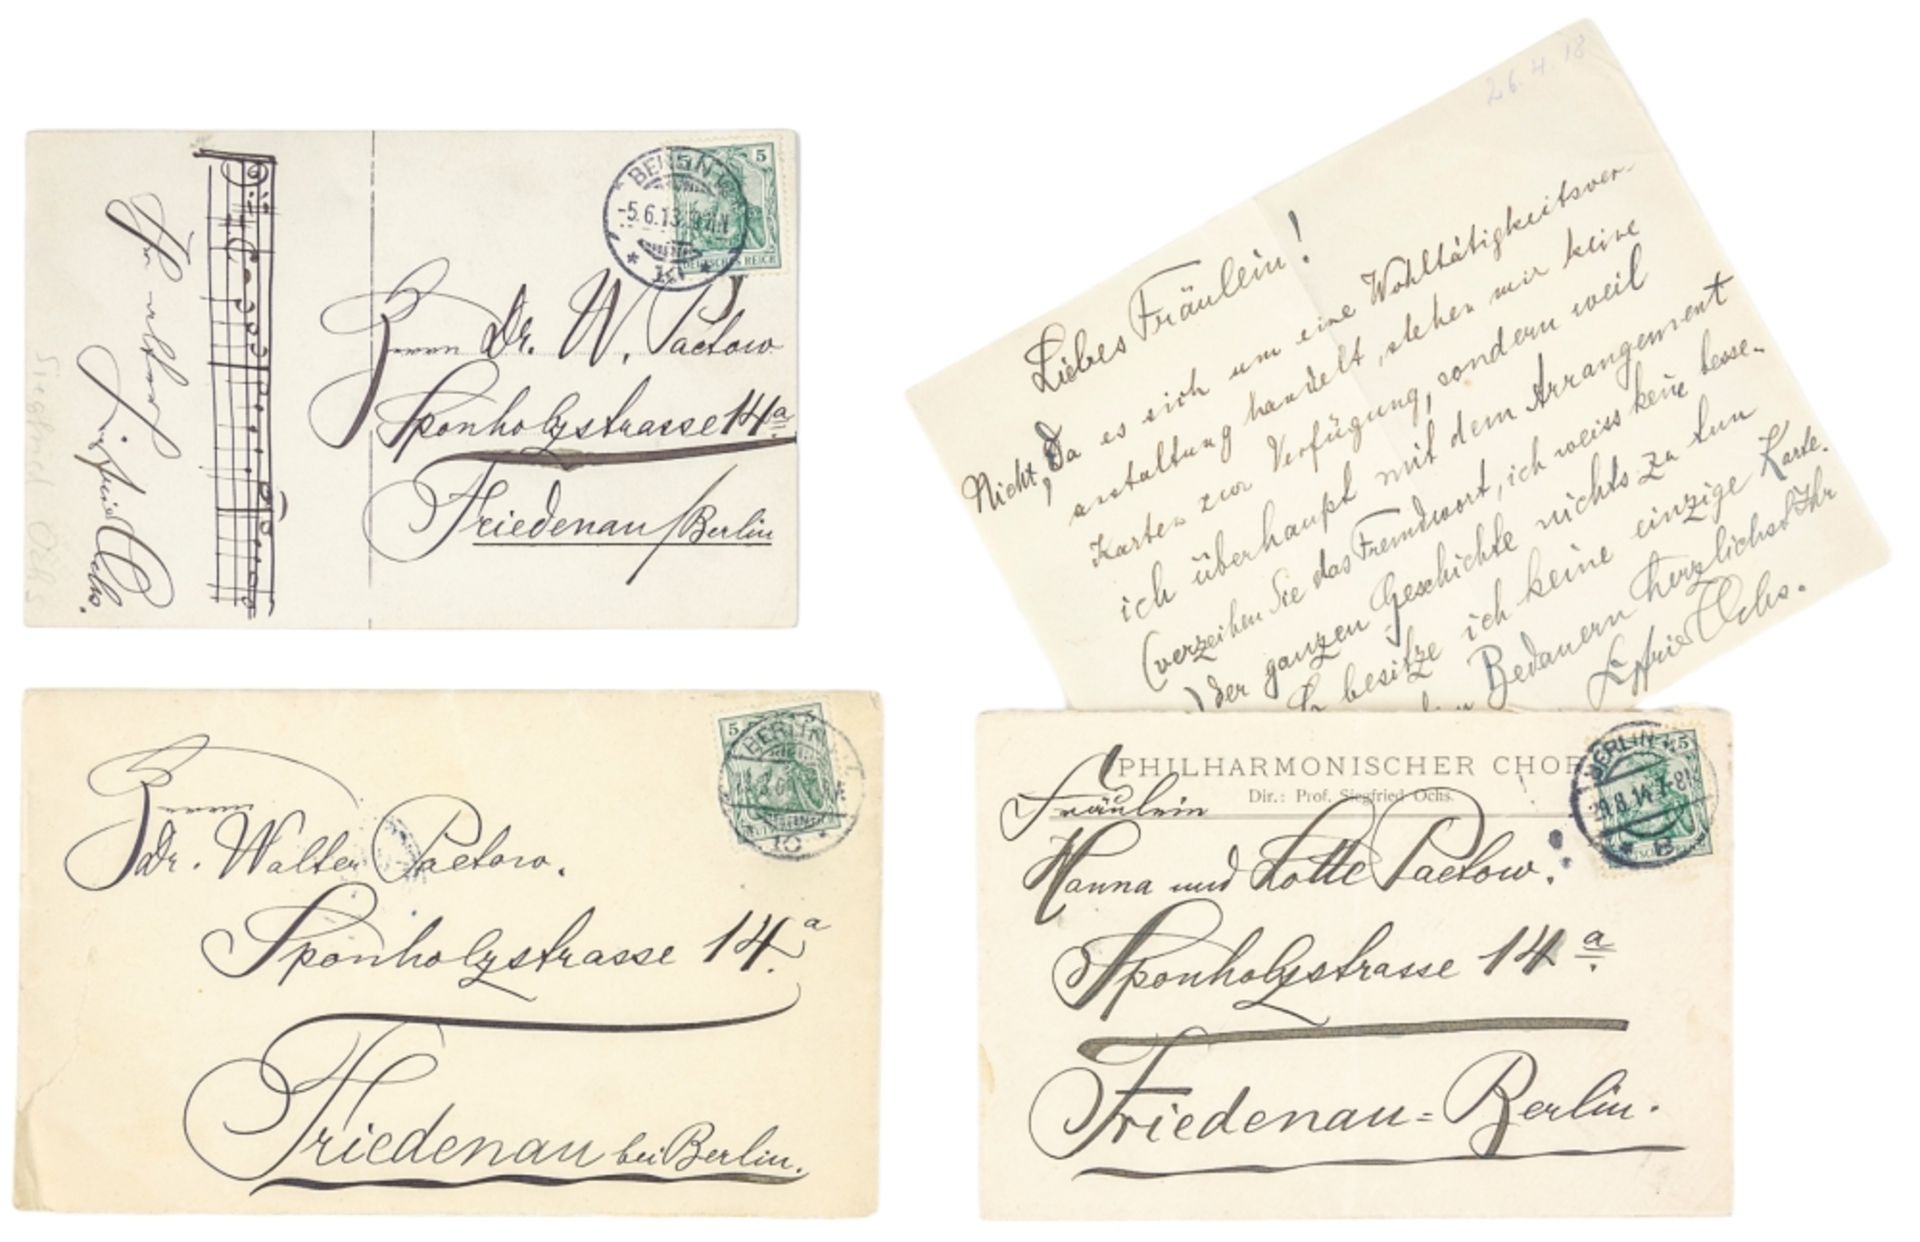 BERLIN
-5.6.13.
5
DEUTSCHES REICH
Herrn Dr. W. Paetow
Sponholzstrasse 14a
Friedenau/Berlin
Ihr
Siegfried Ochs.
Siegfried Ochs
26.4.18
Liebes Fräulein!
Nicht, da es sich um eine Wohltätigkeitsver-
anstaltung handelt, stehen mir keine
Karten zur Verfügung, sondern weil
ich überhaupt mit dem Arrangement
(verzeihen Sie das Fremdwort, ich weiss kein besse-
) der ganzen Geschichte nichts zu tun
besitze ich keine einzige Karte.
Bedauern herzlichst Ihr
Siegfried Ochs.
5
BERLIN
10
Herrn
Dr. Walter Paetow.
Sponholzstrasse 14a.
Friedenau bei Berlin.
PHILHARMONISCHER CHOR
Dir.: Prof. Siegfried Ochs.
BERLIN
5
29.8.14
Fräulein
Hanna und Lotte Paetow.
Sponholzstrasse 14a.
Friedenau=Berlin.